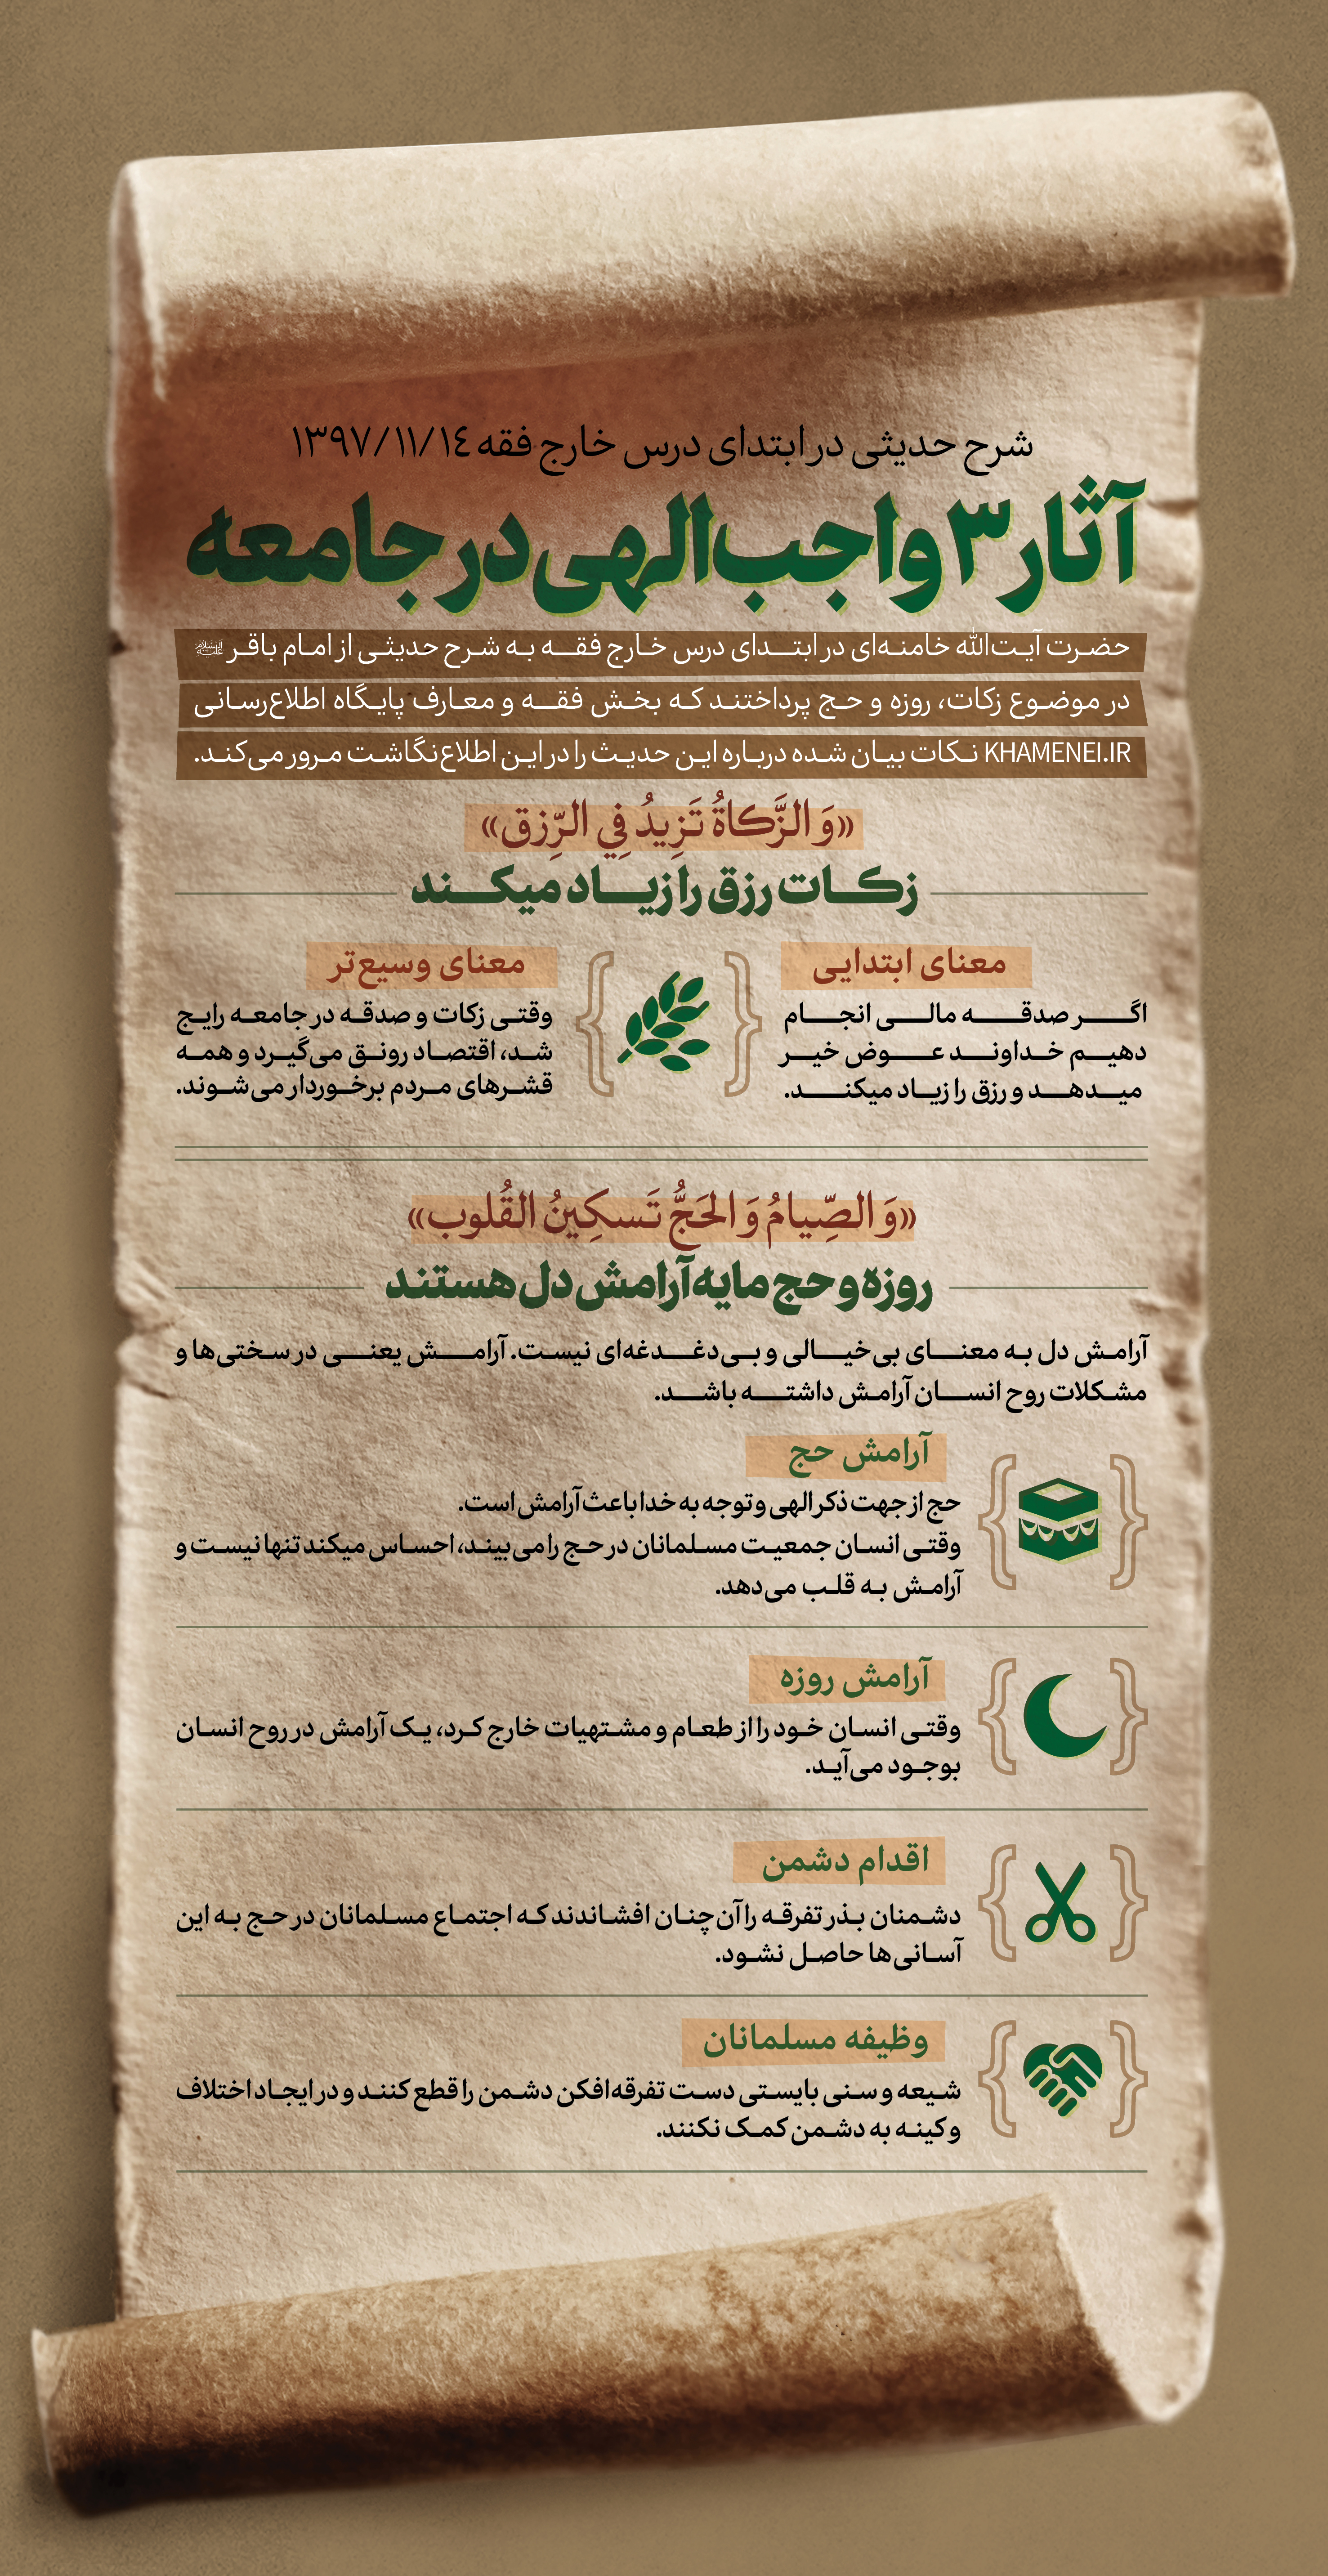 شرح حدیثی در ابتدای درس خارج فقه ۱۳۹۷/۱۱/۱٤
آثار ۳ واجب الهی در جامعه
حضرت آیت‌الله خامنه‌ای در ابتدای درس خارج فقه به شرح حدیثی از امام باقر علیه‌السلام
در موضوع زکات، روزه و حج پرداختند که بخش فقه و معارف پایگاه اطلاع‌رسانی
KHAMENEI.IR نکات بیان شده درباره این حدیث را در این اطلاع‌نگاشت مرور می‌کند.
«وَ الزَّکاةُ تَزِیدُ فِي الرِّزق»
زکات رزق را زیاد میکند
معنای ابتدایی
اگر صدقه مالی انجام
دهیم خداوند عوض خیر
میدهد و رزق را زیاد میکند.
معنای وسیع‌تر
وقتی زکات و صدقه در جامعه رایج
شد، اقتصاد رونق می‌گیرد و همه
قشرهای مردم برخوردار می‌شوند.
«وَ الصِّیامُ وَ الحَجُّ تَسکِینُ القُلوب»
روزه و حج مایه آرامش دل هستند
آرامش دل به معنای بی‌خیالی و بی‌دغدغه‌ای نیست. آرامش یعنی در سختی‌ها و
مشکلات روح انسان آرامش داشته باشد.
آرامش حج
حج از جهت ذکر الهی و توجه به خدا باعث آرامش است.
وقتی انسان جمعیت مسلمانان در حج را می‌بیند، احساس میکند تنها نیست و
آرامش به قلب می‌دهد.
آرامش روزه
وقتی انسان خود را از طعام و مشتهیات خارج کرد، یک آرامش در روح انسان
بوجود می‌آید.
اقدام دشمن
دشمنان بذر تفرقه را آن‌چنان افشاندند که اجتماع مسلمانان در حج به این
آسانی‌ها حاصل نشود.
وظیفه مسلمانان
شیعه و سنی بایستی دست تفرقه‌افکن دشمن را قطع کنند و در ایجاد اختلاف
و کینه به دشمن کمک نکنند.